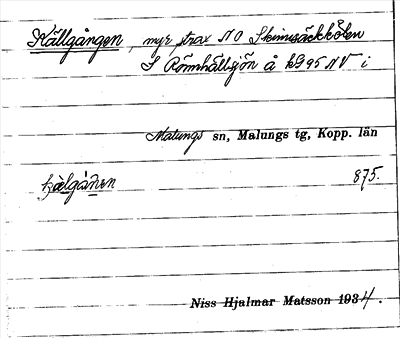 Källgången, myr strax NO Skinnsäckkölen
S Römhällsjön å kb 95 NV i
Malungs sn, Malungs tg, Kopp. län
875.
Niss Hjalmar Matsson 1934.